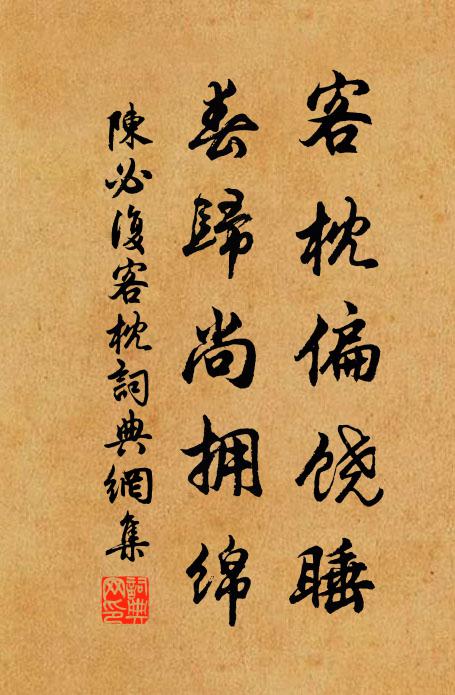 客枕偏饶睡
春歸尚拥绵
陳必復客枕詞典網集
詞典网印